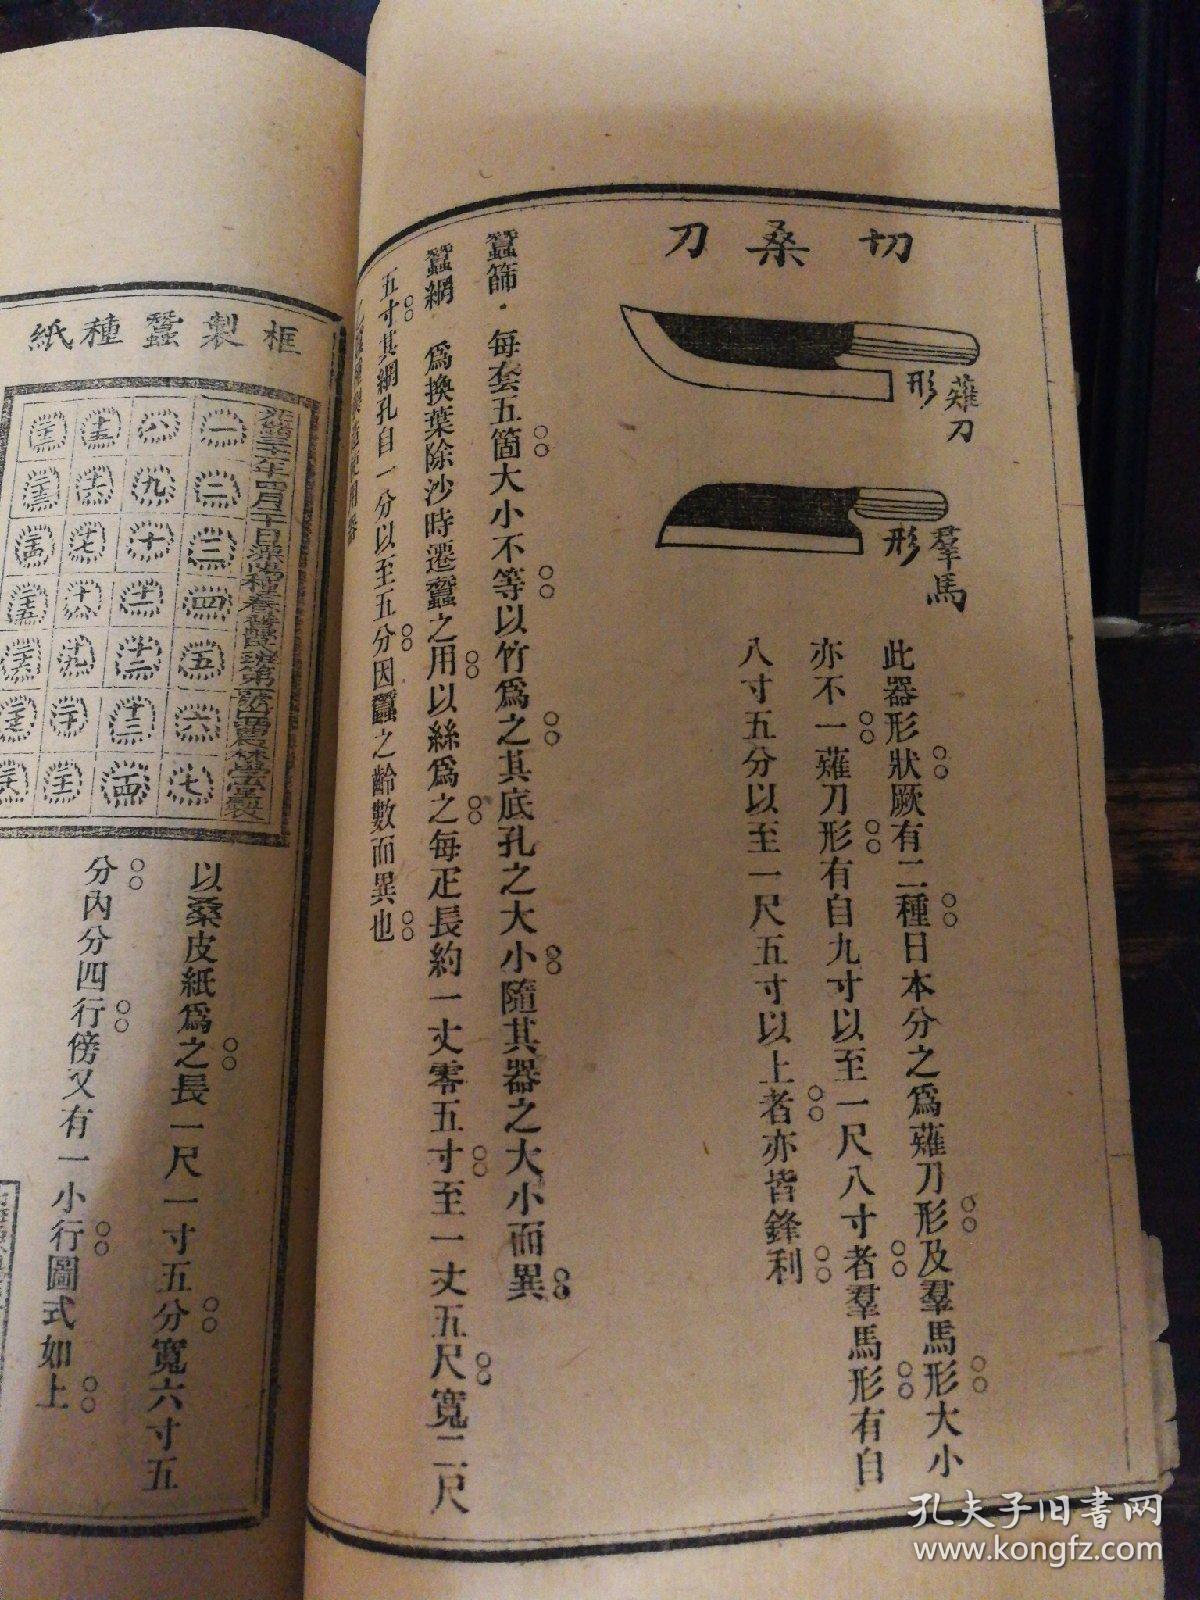 切桑刀
薙刀
形
羣馬
形
此器形狀厥有二種日本分之爲薙刀形及羣馬形大小
亦不一薙刀形有自九寸以至一尺八寸者羣馬形有自
八寸五分以至一尺五寸以上者亦皆鋒利
蠶篩·每套五箇大小不等以竹爲之其底孔之大小隨其器之大小而異
蠶網 爲換葉除沙時遷蠶之用以絲爲之每疋長約一丈零五寸至一丈五尺寬二尺
五寸其網孔自一分以至五分因蠶之齡數而異也
框製蠶種紙
一
二
三
四
五
六
七
八
九
十
十一
十二
十三
十四
十五
十六
十七
十八
十九
二十
以桑皮紙爲之長一尺一寸五分寬六寸五
分內分四行傍又有一小行圖式如上
孔夫子旧书网
www.kongfz.com